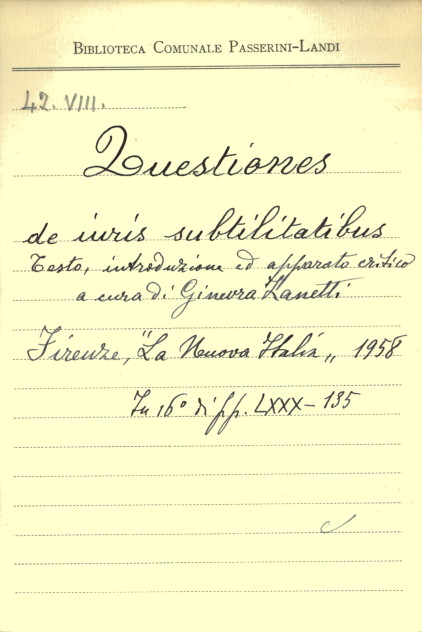 Biblioteca Comunale Passerini-Landi
42. VIII.
Questiones
de iuris subtilitatibus
Testo, introduzione ed apparato critico
a cura di Ginevra Zanetti
Firenze, "La Nuova Italia„ 1958
In 16° di pp. LXXX-135